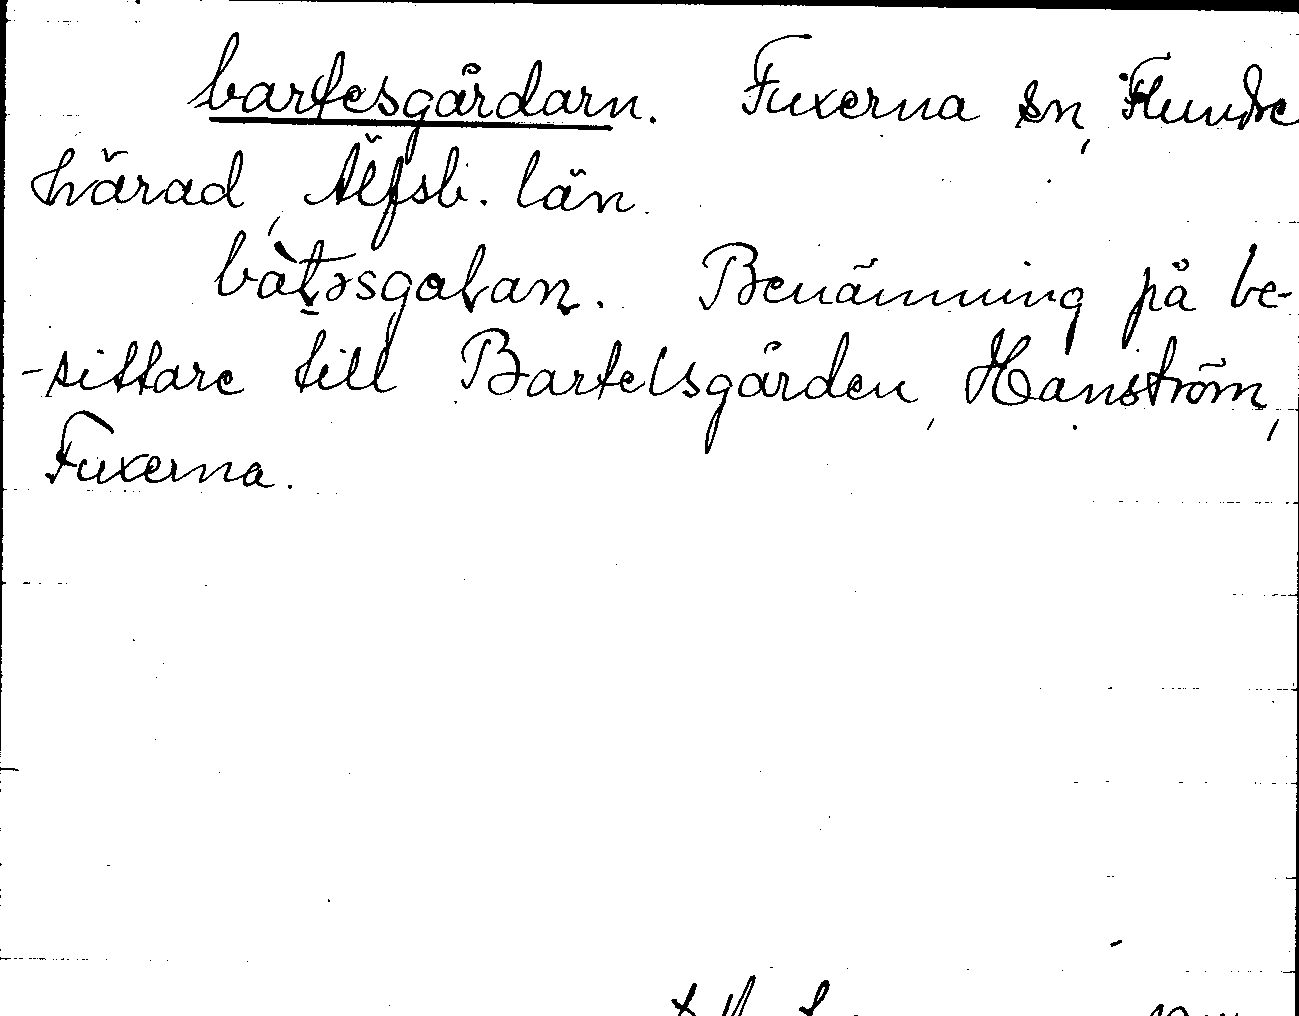 bartesgårdarn. Fuxerna sn, Flundre
härad, Älfsb. län.
bàt̠əsgaɫan. Benämning på be-
-sittare till Bartelsgården, Hanström,
Fuxerna.